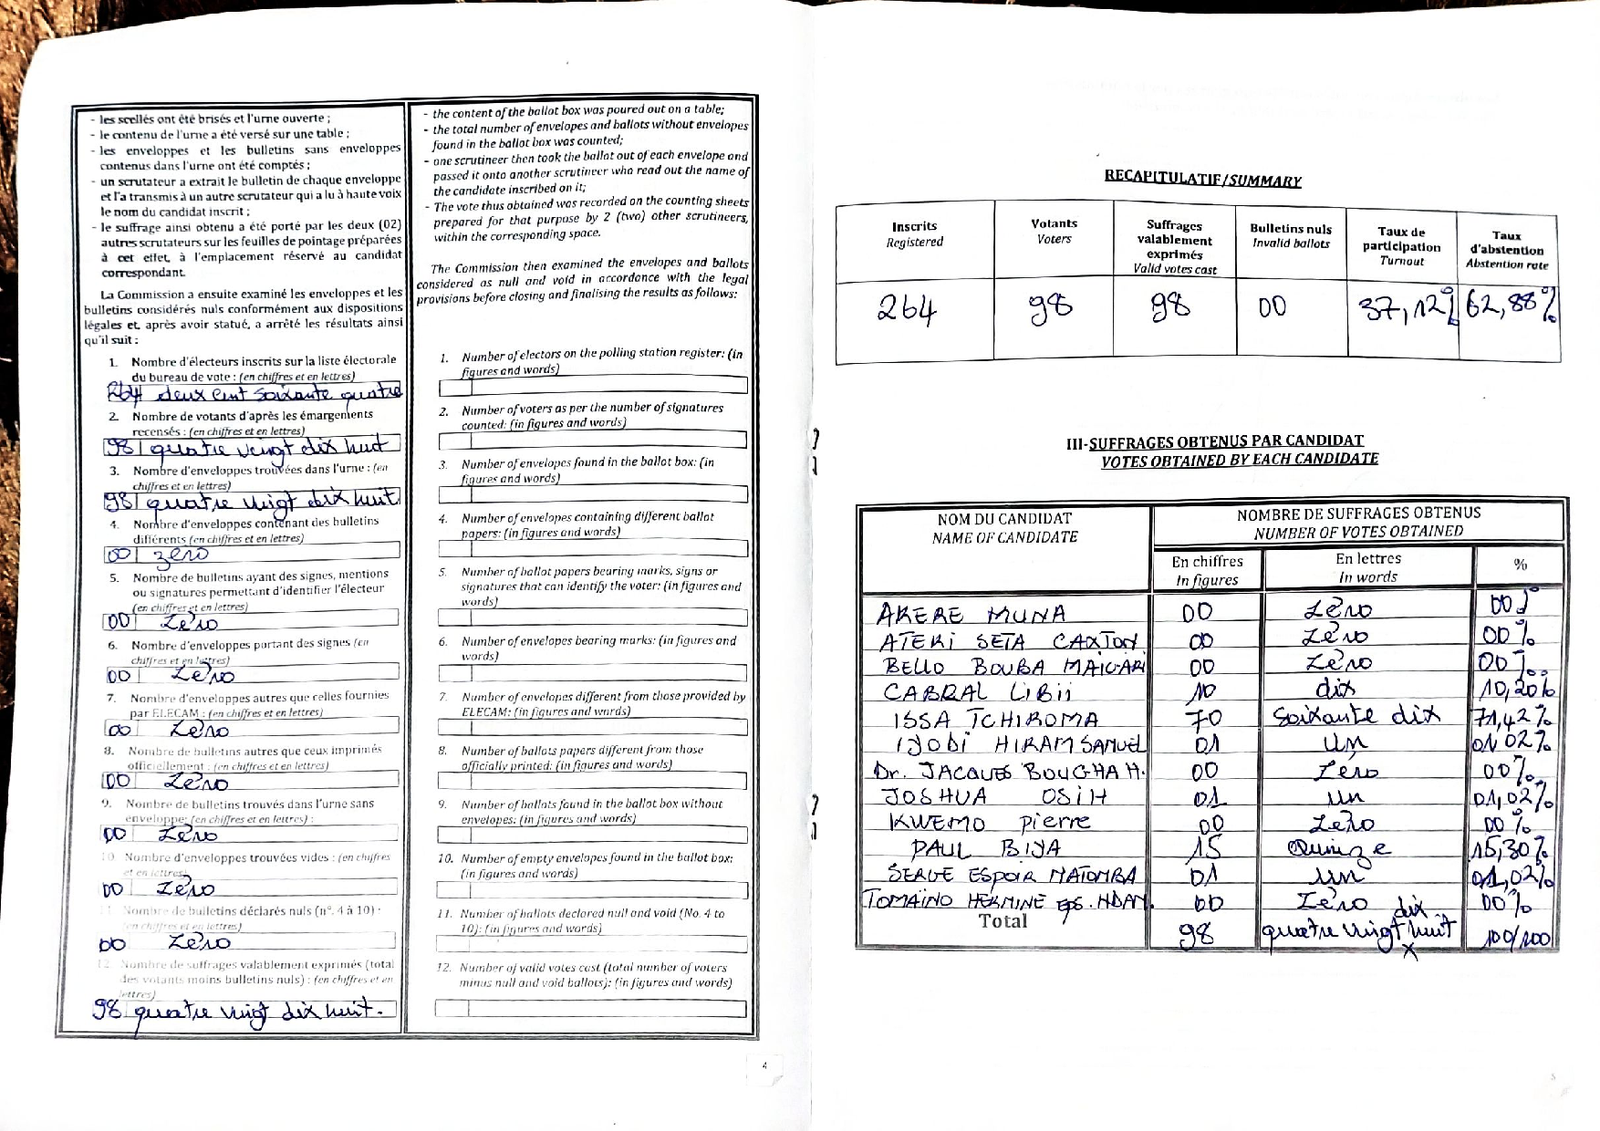 - les scellés ont été brisés et l'urne ouverte ;
- le contenu de l'urne a été versé sur une table ;
- les enveloppes et les bulletins sans enveloppes
contenus dans l'urne ont été comptés ;
- un scrutateur a extrait le bulletin de chaque enveloppe
et l'a transmis à un autre scrutateur qui a lu à haute voix
le nom du candidat inscrit ;
- le suffrage ainsi obtenu a été porté par les deux (02)
autres scrutateurs sur les feuilles de pointage préparées
à cet effet, à l'emplacement réservé au candidat
correspondant.
La Commission a ensuite examiné les enveloppes et les
bulletins considérés nuls conformément aux dispositions
légales et, après avoir statué, a arrêté les résultats ainsi
qu'il suit :
1. Nombre d'électeurs inscrits sur la liste électorale
du bureau de vote : (en chiffres et en lettres)
264 deux cent soixante quatre
2. Nombre de votants d'après les émargements
recensés : (en chiffres et en lettres)
98 quatre vingt dix huit
3. Nombre d'enveloppes trouvées dans l'urne : (en
chiffres et en lettres)
98 quatre vingt dix huit
4. Nombre d'enveloppes contenant des bulletins
différents (en chiffres et en lettres)
00 zéro
5. Nombre de bulletins ayant des signes, mentions
ou signatures permettant d'identifier l'électeur
(en chiffres et en lettres)
00 Zéro
6. Nombre d'enveloppes portant des signes (en
chiffres et en lettres)
00 Zéro
7. Nombre d'enveloppes autres que celles fournies
par ELECAM : (en chiffres et en lettres)
00 Zéro
8. Nombre de bulletins autres que ceux imprimés
officiellement : (en chiffres et en lettres)
00 Zéro
9. Nombre de bulletins trouvés dans l'urne sans
enveloppe: (en chiffres et en lettres) :
00 Zéro
10. Nombre d'enveloppes trouvées vides : (en chiffres
et en lettres)
00 Zéro
11. Nombre de bulletins déclarés nuls (n°. 4 à 10) :
(en chiffres et en lettres)
00 Zéro
12. Nombre de suffrages valablement exprimés (total
des votants moins bulletins nuls) : (en chiffres et en
lettres)
98 quatre vingt dix huit.
- the content of the ballot box was poured out on a table;
- the total number of envelopes and ballots without envelopes
found in the ballot box was counted;
- one scrutineer then took the ballot out of each envelope and
passed it onto another scrutineer who read out the name of
the candidate inscribed on it;
- The vote thus obtained was recorded on the counting sheets
prepared for that purpose by 2 (two) other scrutineers,
within the corresponding space.
The Commission then examined the envelopes and ballots
considered as null and void in accordance with the legal
provisions before closing and finalising the results as follows:
1. Number of electors on the polling station register: (in
figures and words)
2. Number of voters as per the number of signatures
counted: (in figures and words)
3. Number of envelopes found in the ballot box: (in
figures and words)
4. Number of envelopes containing different ballot
papers: (in figures and words)
5. Number of ballot papers bearing marks, signs or
signatures that can identify the voter: (in figures and
words)
6. Number of envelopes bearing marks: (in figures and
words)
7. Number of envelopes different from those provided by
ELECAM: (in figures and words)
8. Number of ballots papers different from those
officially printed: (in figures and words)
9. Number of ballots found in the ballot box without
envelopes: (in figures and words)
10. Number of empty envelopes found in the ballot box:
(in figures and words)
11. Number of ballots declared null and void (No. 4 to
10): (in figures and words)
12. Number of valid votes cast (total number of voters
minus null and void ballots): (in figures and words)
4
RECAPITULATIF/SUMMARY
Inscrits Registered
Votants Voters
Suffrages valablement exprimés Valid votes cast
Bulletins nuls Invalid ballots
Taux de participation Turnout
Taux d'abstention Abstention rate
264 98 98 00 37,12% 62,88%
III-SUFFRAGES OBTENUS PAR CANDIDAT
VOTES OBTAINED BY EACH CANDIDATE
NOM DU CANDIDAT NAME OF CANDIDATE
NOMBRE DE SUFFRAGES OBTENUS
NUMBER OF VOTES OBTAINED
En chiffres In figures
En lettres In words
%
AKERE MUNA 00 Zéro 00%
ATEKI SETA CAXTON 00 Zéro 00%
BELLO BOUBA MAIGARI 00 Zéro 00%
CABRAL LIBii 10 dix 10,20%
ISSA TCHIROMA 70 Soixante dix 71,42%
IYODi HIRAM SAMUEL 01 Un 01,02%
Dr. JACQUES BOUGHA H. 00 Zéro 00%
JOSHUA OSIH 01 un 01,02%
KWEMO Pierre 00 Zéro 00%
PAUL BIYA 15 Quinze 15,30%
SERGE ESPOIR MATOMBA 01 un 01,02%
TOMAÏNO HERMINE eps. NDAM. 00 Zéro 00%
Total 98 quatre vingt dix huit 100/100
5